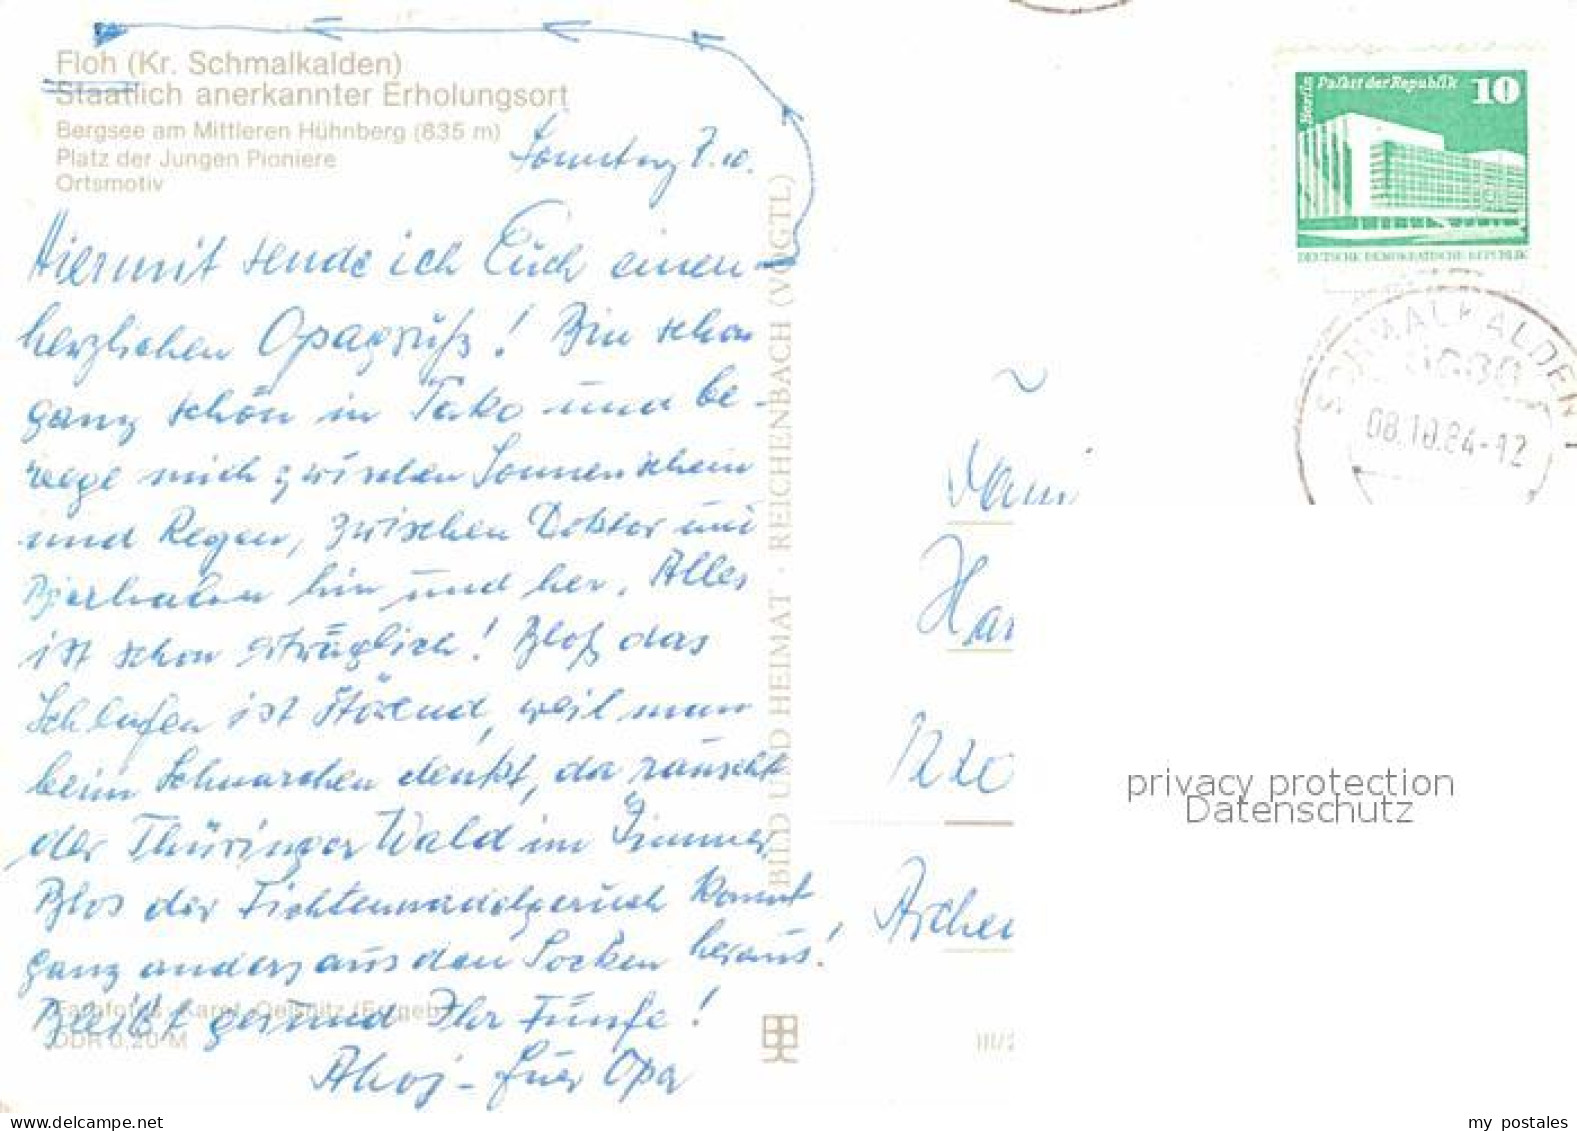 Floh (Kr. Schmalkalden)
Staatlich anerkannter Erholungsort
Bergsee am Mittleren Hühnberg (835 m)
Platz der Jungen Pioniere
Ortsmotiv
Sonntag 7.10.
Hiermit sende ich Euch einen
herzlichen Opagruß! Bin schon
ganz schön in Tako und be-
wege mich zwischen Sonnenschein
und Regen, zwischen Doktor und
Bierhahn hin und her. Alles
ist schon erträglich! Bloß das
Schlafen ist störend, weil man
beim Schnarchen denkt, da rauscht
der Thüringer Wald im Zimmer
Blos der Fichtennadelgeruch kommt
ganz anders aus den Socken heraus!
Bleibt gesund Ihr Fünfe!
Ahoj - Euer Opa
Farbfotos: Karet, Oelsnitz (Erzgeb.)
DDR 0,20 M
BILD UND HEIMAT · REICHENBACH (VOGTL)
Berlin Palast der Republik 10
DEUTSCHE DEMOKRATISCHE REPUBLIK
SCHMALKALDEN 1
6080
08.10.84-12
Fam
Har
Archen
III/
privacy protection
Datenschutz
my postales